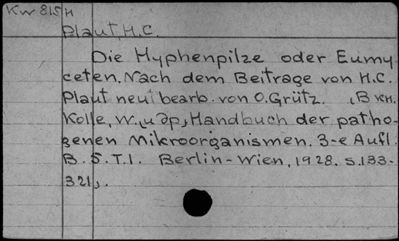 Kw 815 H
Plaut H.C.
Die Hyphenpilze oder Eumy
ceten. Nach dem Beitrage von H.C.
Plaut neu bearb. von O. Grütz. (В кн.
Kolle, W. и др, Handbuch der patho-
genen Mikroorganismen. 3-e Aufl.
B. 5. T. I. Berlin-Wien, 1928. S. 133-
321).